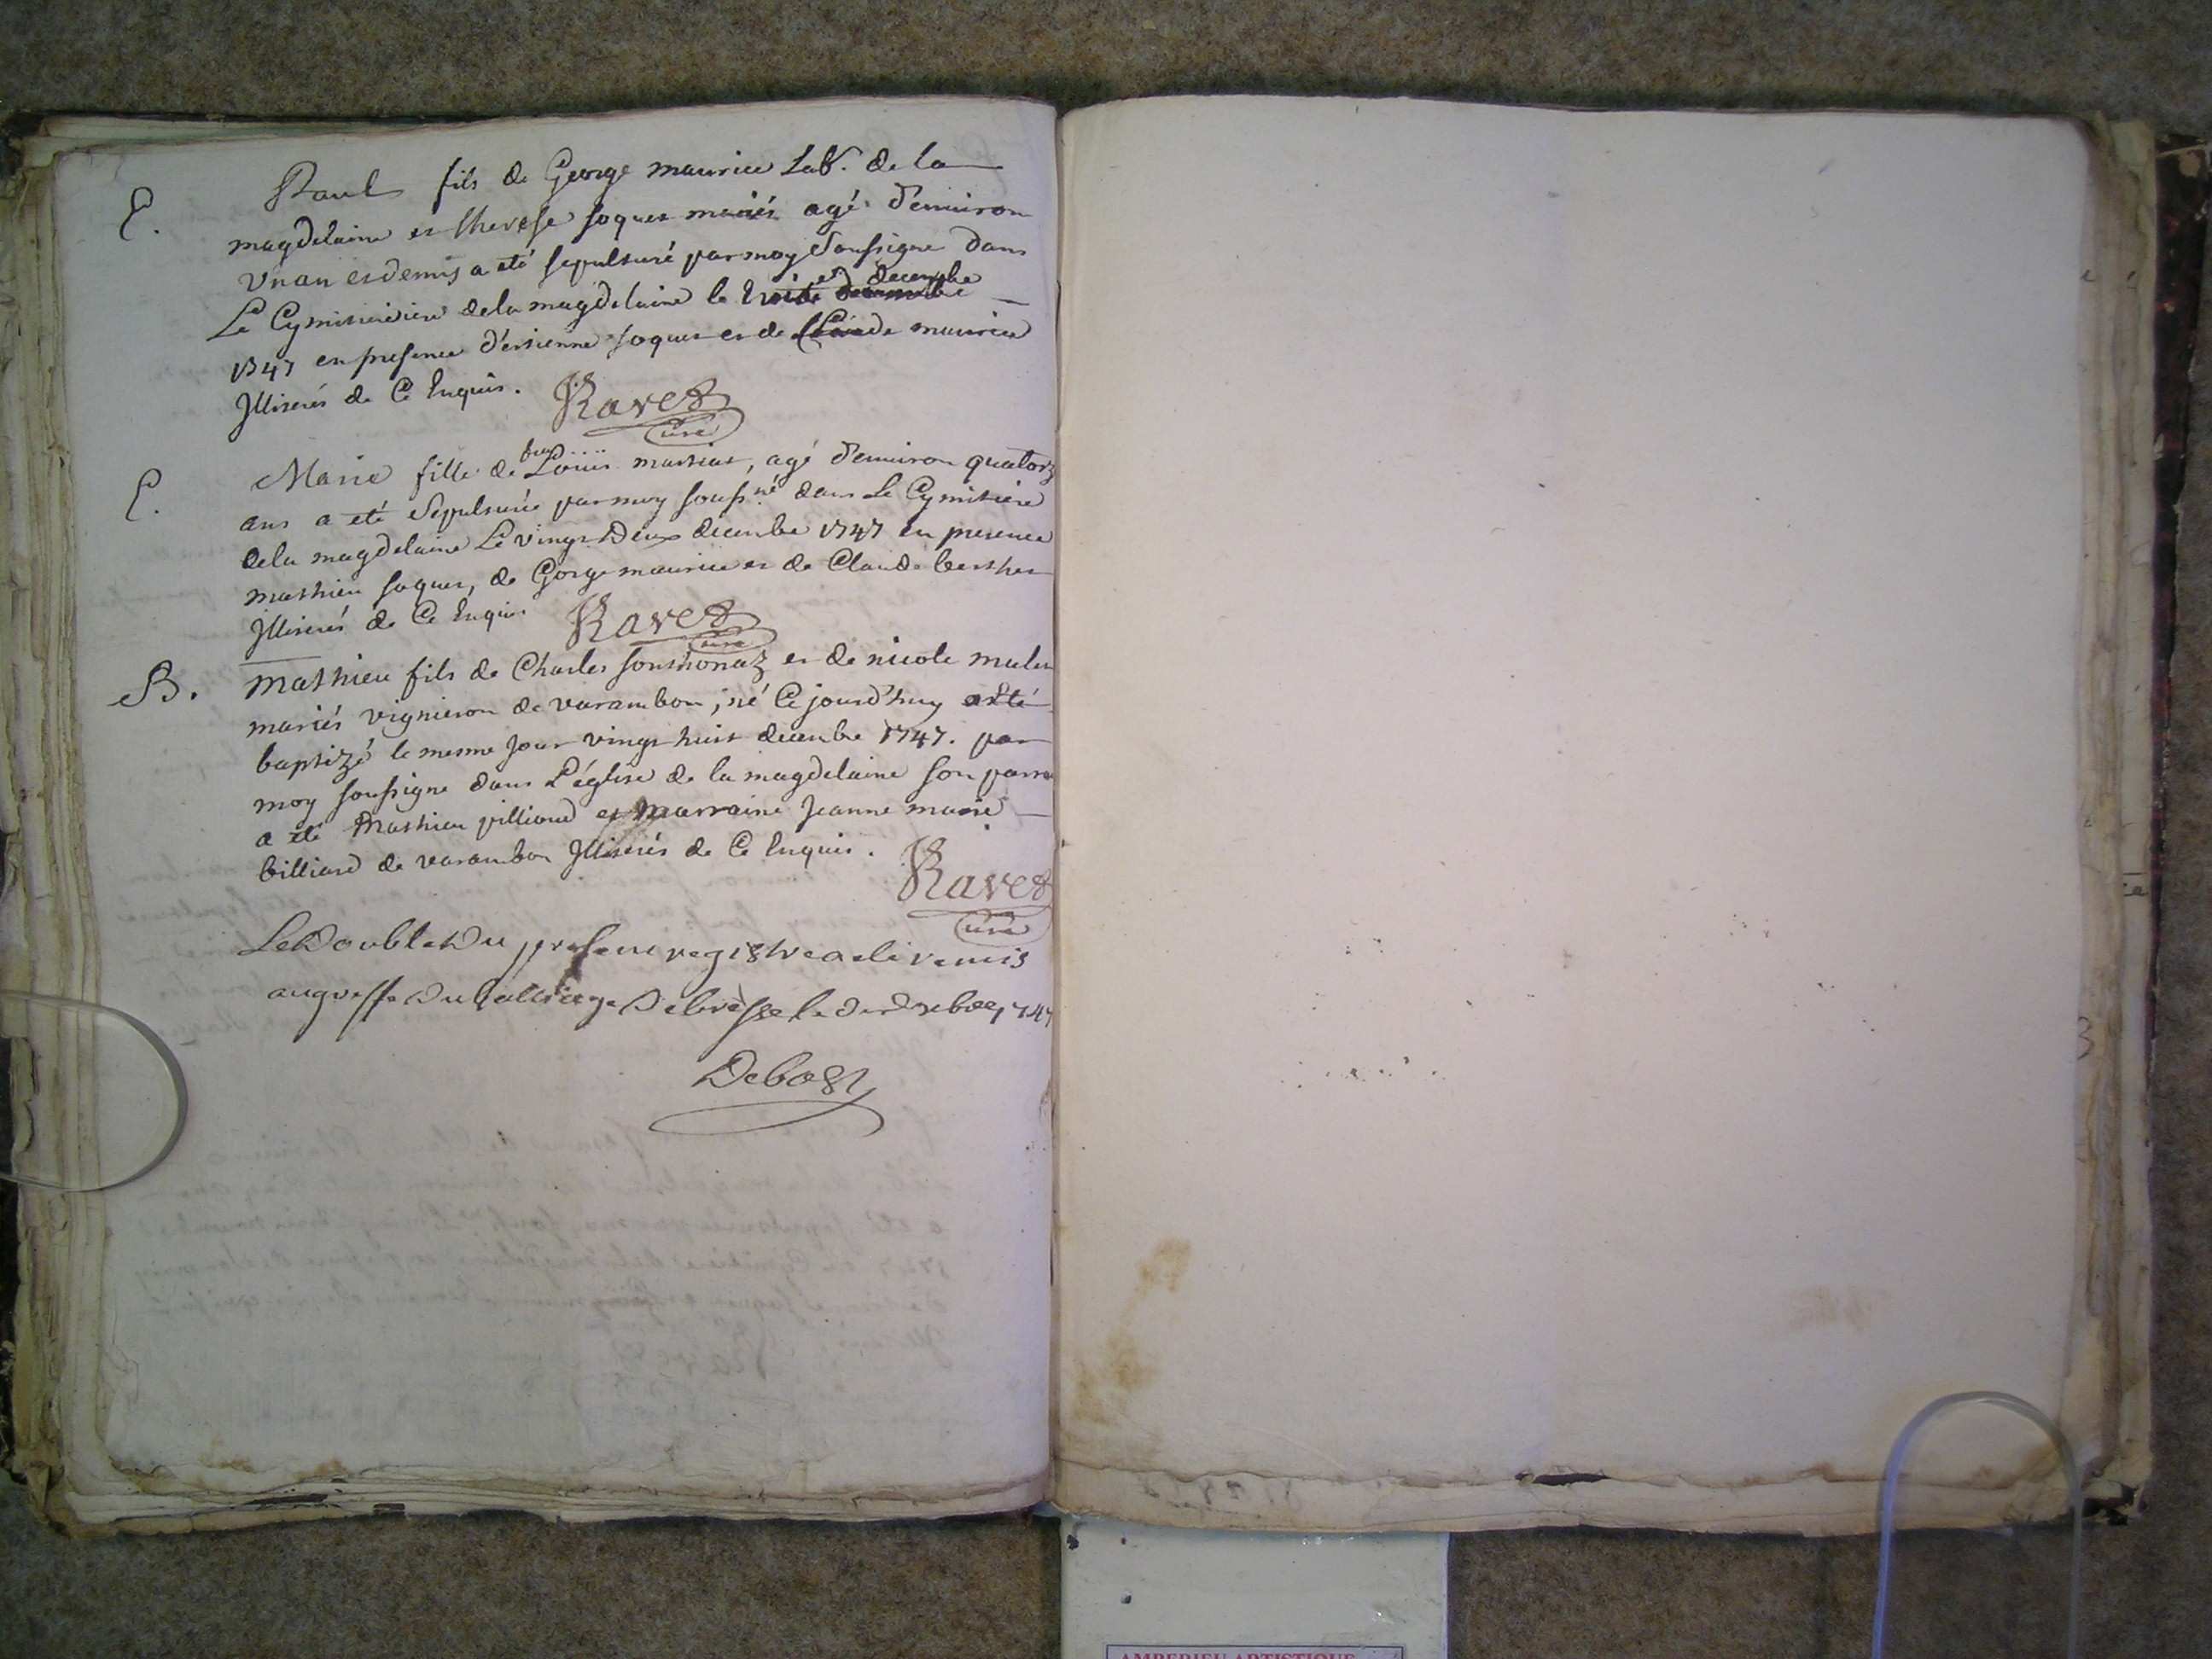 E. Paul fils de George maurice Lab.r de la
magdelaine et therese foquet mariés agé d'environ
vn an et demis a eté sepulturé par moy soussigne dans
Le Cymitiere dela magdelaine le decembre
1747 en presence d'estienne foquet et de Claude maurice
Illiterés de Ce Enquis.
Ravet
curé
E. Marie fille de feu Louis mathiat, agé d'environ quatorz
ans a eté Sepulturée par moy souss.né dans Le Cymitiere
dela magdelaine Le vingt Deux decembre 1747 En presence
mathieu foquet, de Gorge maurice et de Claude berthet
Illiterés de Ce Enquis
Ravet
curé
B. mathieu fils de Charles fonthonaz et de nicole
mariés vigneron de varambon, né Ce jourd'huy a eté
baptizé le mesme jour vingt huit decembre 1747. par
moy soussigne dans L'église de la magdelaine son parra
a eté Mathieu billiand et marraine Jeanne marie
billiard de varambon Illiterés de Ce Enquis.
Ravet
curé
Le Double Du present registre a eté remis
au greffe Du balliage De bresse le 1747
Debost
AMBERIEU ARTISTIQUE